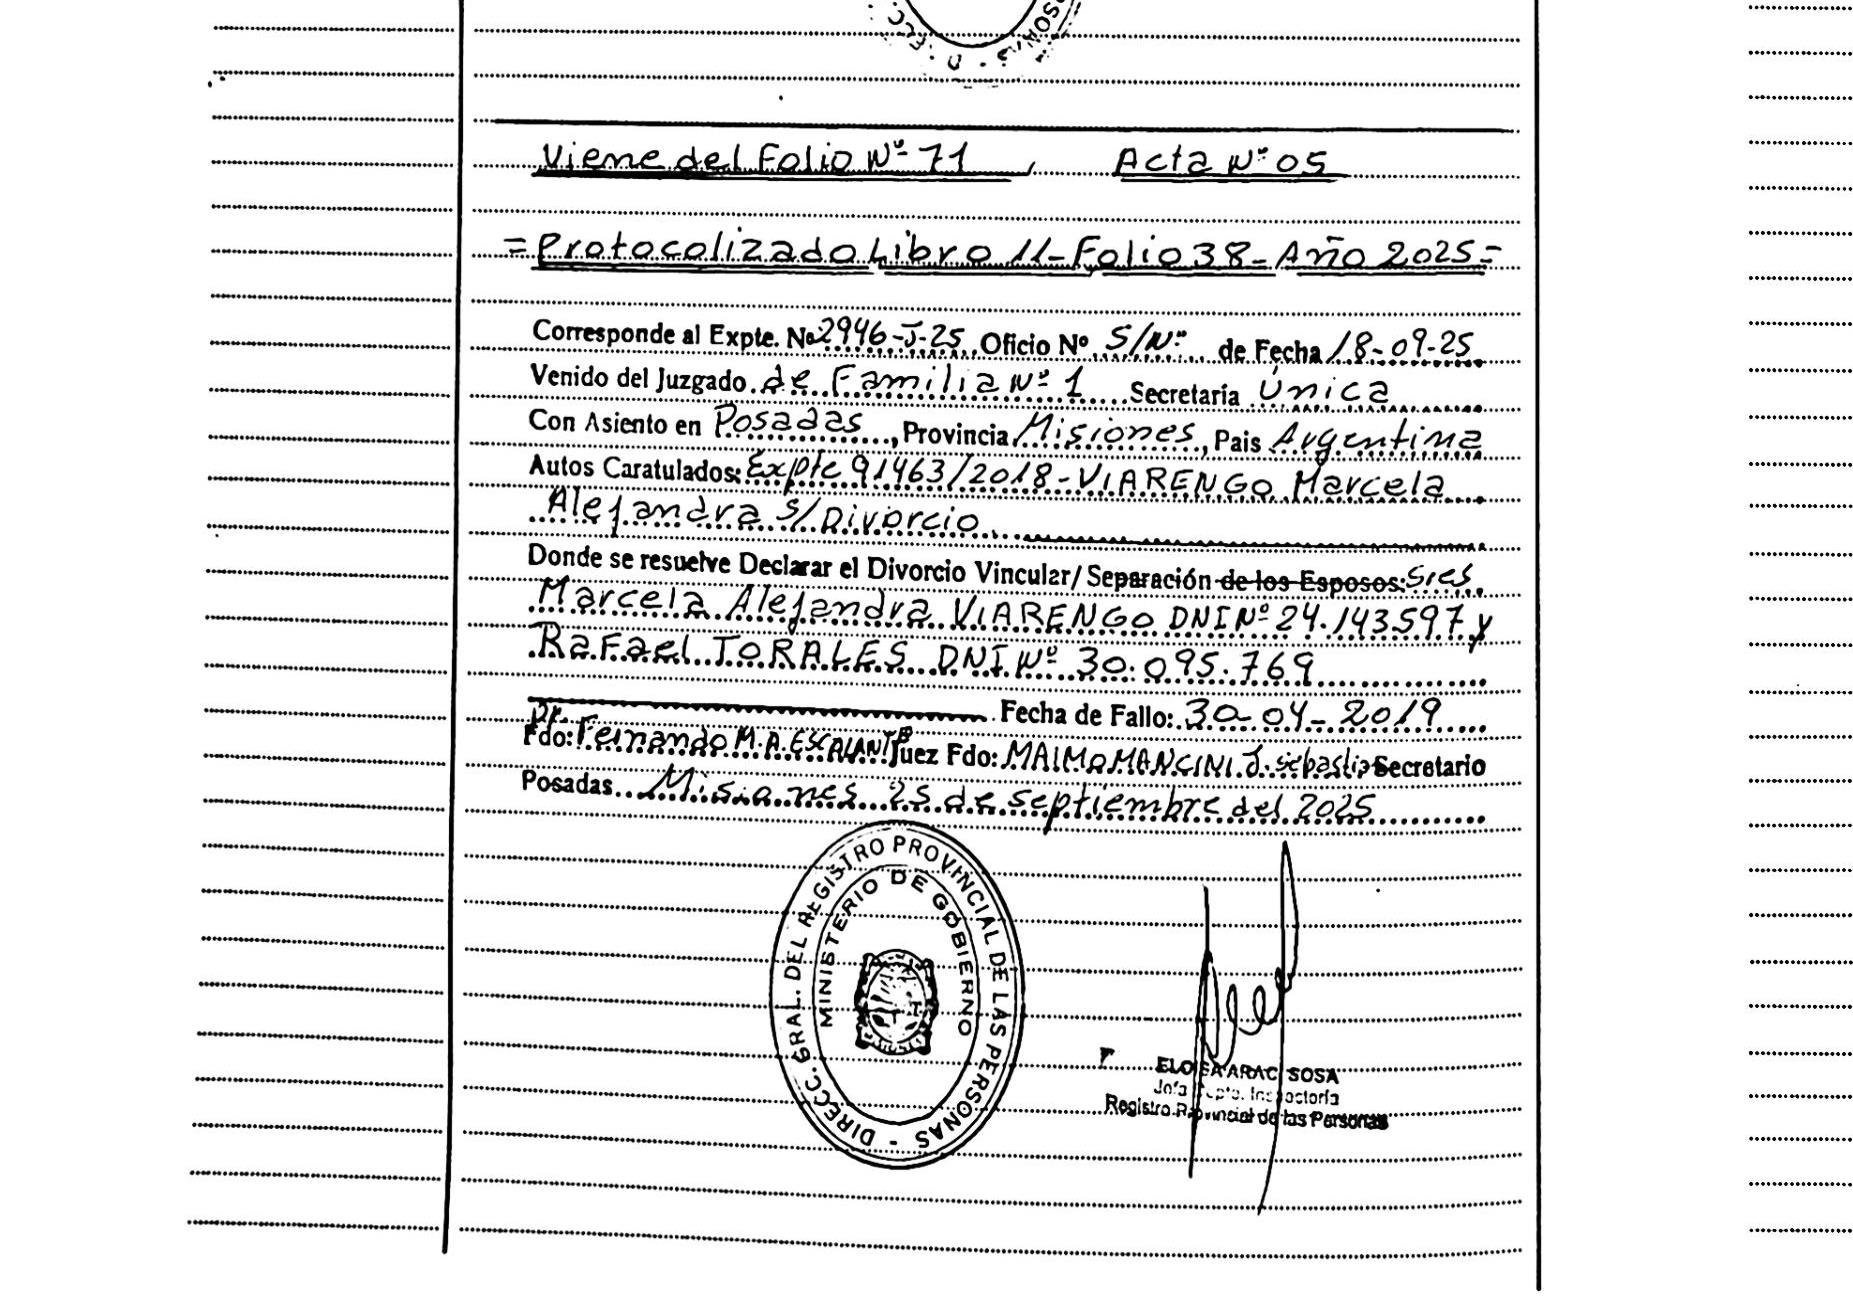 Viene del Folio Nº 71, Acta Nº 05
= Protocolizado Libro 11 - Folio 38 - Año 2025 =
Corresponde al Expte. Nº 2946-J-25 Oficio Nº S/Nº de Fecha 18-09-25
Venido del Juzgado de Familia Nº 1 Secretaría Única
Con Asiento en Posadas, Provincia Misiones, Pais Argentina
Autos Caratulados: Expte 91463/2018 - VIARENGO Marcela
Alejandra S/ Divorcio
Donde se resuelve Declarar el Divorcio Vincular/ Separación de los Esposos: Sres
Marcela Alejandra VIARENGO DNI Nº 24.143.597 y
Rafael TORALES DNI Nº 30.095.769
Fecha de Fallo: 30-04-2019
Fdo: Dr. Fernando M.A. ESCALANTE Juez Fdo: MAIMO MANCINI J. Secretario
Posadas Misiones 25 de septiembre del 2025
DIRECC. GRAL. DEL REGISTRO PROVINCIAL DE LAS PERSONAS -
MINISTERIO DE GOBIERNO
SOSA
Registro Provincial de las Personas